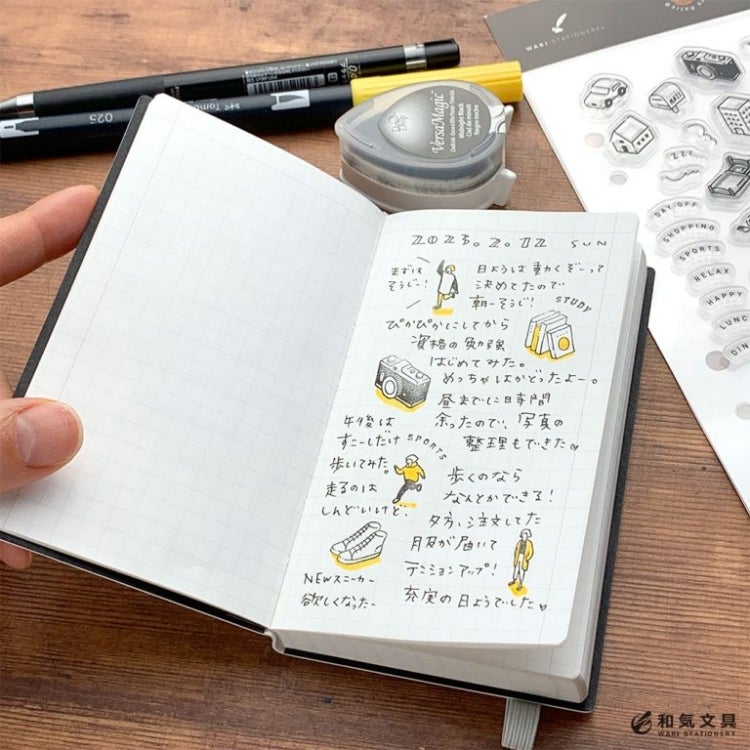 WAKI STATIONERY
Tombow
025
VersaMagic
Midnight Black
ZZZ
DAY OFF
SHOPPING
SPORTS
RELAX
HAPPY
LUNC
DIN
2023.2.12 SUN
まずは
そうじー!
日ようは動くぞーって
決めてたので
朝一そうじ!
STUDY
ぴかぴかにしてから
資格の勉強
はじめてみた。
めっちゃはかどったよー。
昼までに日寺間
余ったので、写真の
整理もできた♡
午後は
すこーしだけ
SPORTS
歩いてみた。
走るのは
しんどいけど、
歩くのなら
なんとかできる!
夕方、注文してた
月反が届いて
テンションアップ!
NEWスニーカー
欲しくなったー
充実の日ようでした♡
和気文具
WAKI STATIONERY